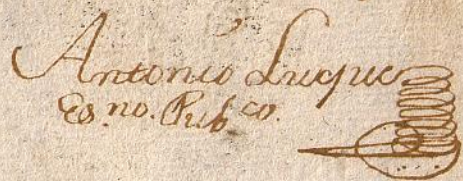 Antonio Luque
Es.no. Pubco.